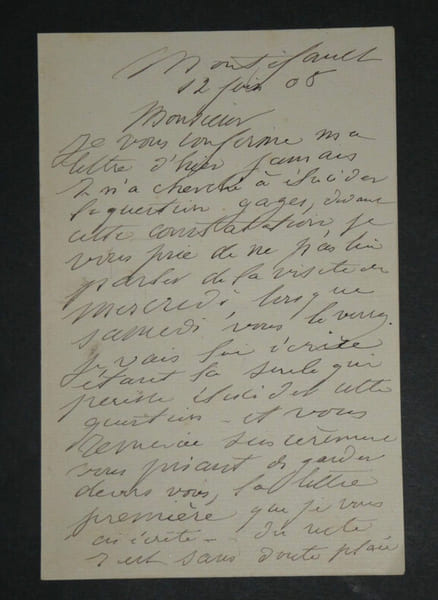 Montifault
12 juin 08
Monsieur
Je vous confirme ma
lettre d'hier jamais
X n'a cherché à élucider
la question gages, devant
cette constatation je
vous prie de ne pas lui
parler de la visite de
mercredi lorsque
samedi vous le verrez.
Je vais lui écrire
étant la seule qui
puisse élucider cette
question - et vous
remercie sincèrement
vous priant de garder
devers vous, la lettre
première que je vous
ai écrite - du reste
X est sans doute placé